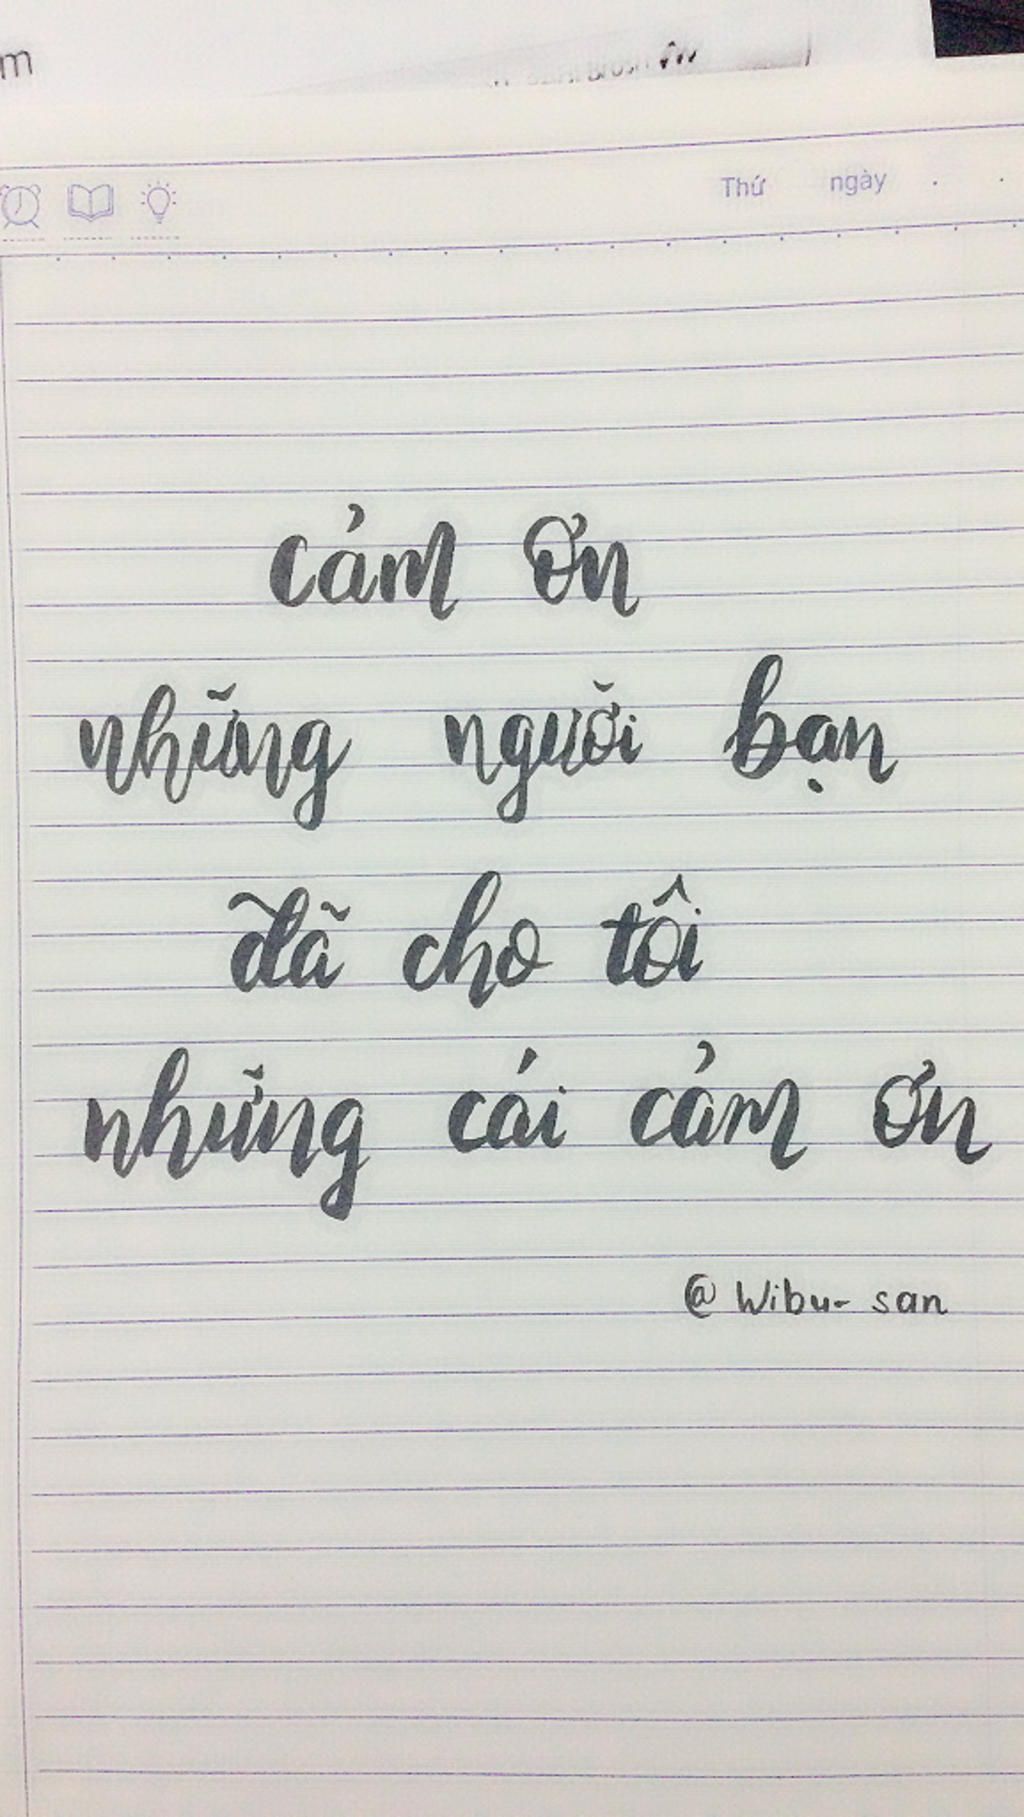 m
Thứ ngày . .
cảm ơn
những người bạn
đã cho tôi
những cái cảm ơn
@ Wibu- san